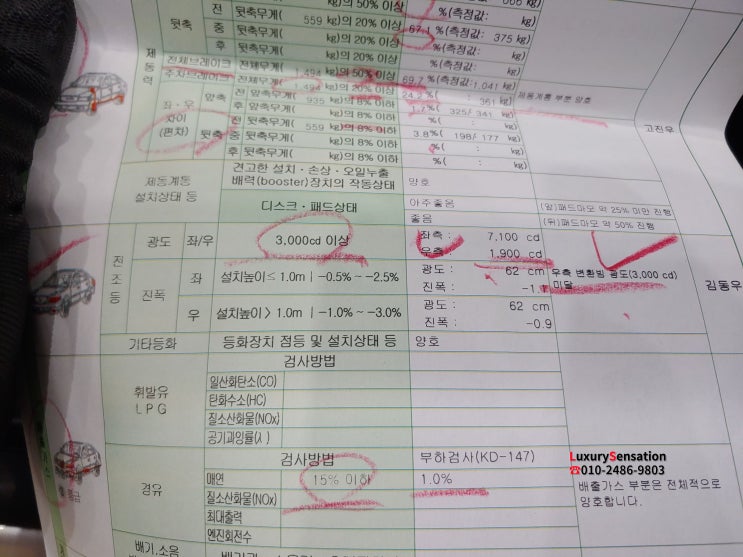 kg)의 50% 이상 %(측정값: kg)
뒷축 전 뒷축무게( 559 kg)의 20% 이상 67.1 %(측정값: 375 kg)
중 뒷축무게( kg)의 20% 이상 %(측정값: kg)
후 뒷축무게( kg)의 20% 이상 %(측정값: kg)
제동력
전체브레이크 전체무게( 1,494 kg)의 50% 이상
주차브레이크 전체무게( 1,494 kg)의 20% 이상 69.7 %(측정값: 1,041 kg) 제동계통 부분 양호
좌·우 차이 (편차)
앞축 전 앞축무게( 935 kg)의 8% 이하 361 kg)
후 앞축무게( kg)의 8% 이하 325/ 341 kg)
뒷축 전 뒷축무게( 559 kg)의 8% 이하 3.8%( 198/ 177 kg)
중 뒷축무게( kg)의 8% 이하 %( : kg)
후 뒷축무게( kg)의 8% 이하
고진우
제동계통 설치상태 등
견고한 설치·손상·오일누출
배력(booster)장치의 작동상태 양호
디스크·패드상태 아주좋음 (앞)패드마모 약 25% 미만 진행
좋음 (뒤)패드마모 약 50% 진행
전조등
광도 좌/우 3,000cd 이상 좌측 : 7,100 cd
우측 : 1,900 cd
진폭 좌 설치높이≤ 1.0m | -0.5% ~ -2.5% 광도 : 62 cm
진폭 : -1.1
우측 변환빔 광도(3,000 cd)
미달
김동우
우 설치높이> 1.0m | -1.0% ~ -3.0% 광도 : 62 cm
진폭 : -0.9
기타등화 등화장치 점등 및 설치상태 등 양호
검사방법
휘발유
LPG
일산화탄소(CO)
탄화수소(HC)
질소산화물(NOx)
공기과잉률(λ)
경유
검사방법 무부하검사(KD-147)
매연 15% 이하 1.0%
질소산화물(NOx)
최대출력
엔진회전수
LuxurySensation
☎010-2486-9803
배출가스 부분은 전체적으로
양호합니다.
배기,소음